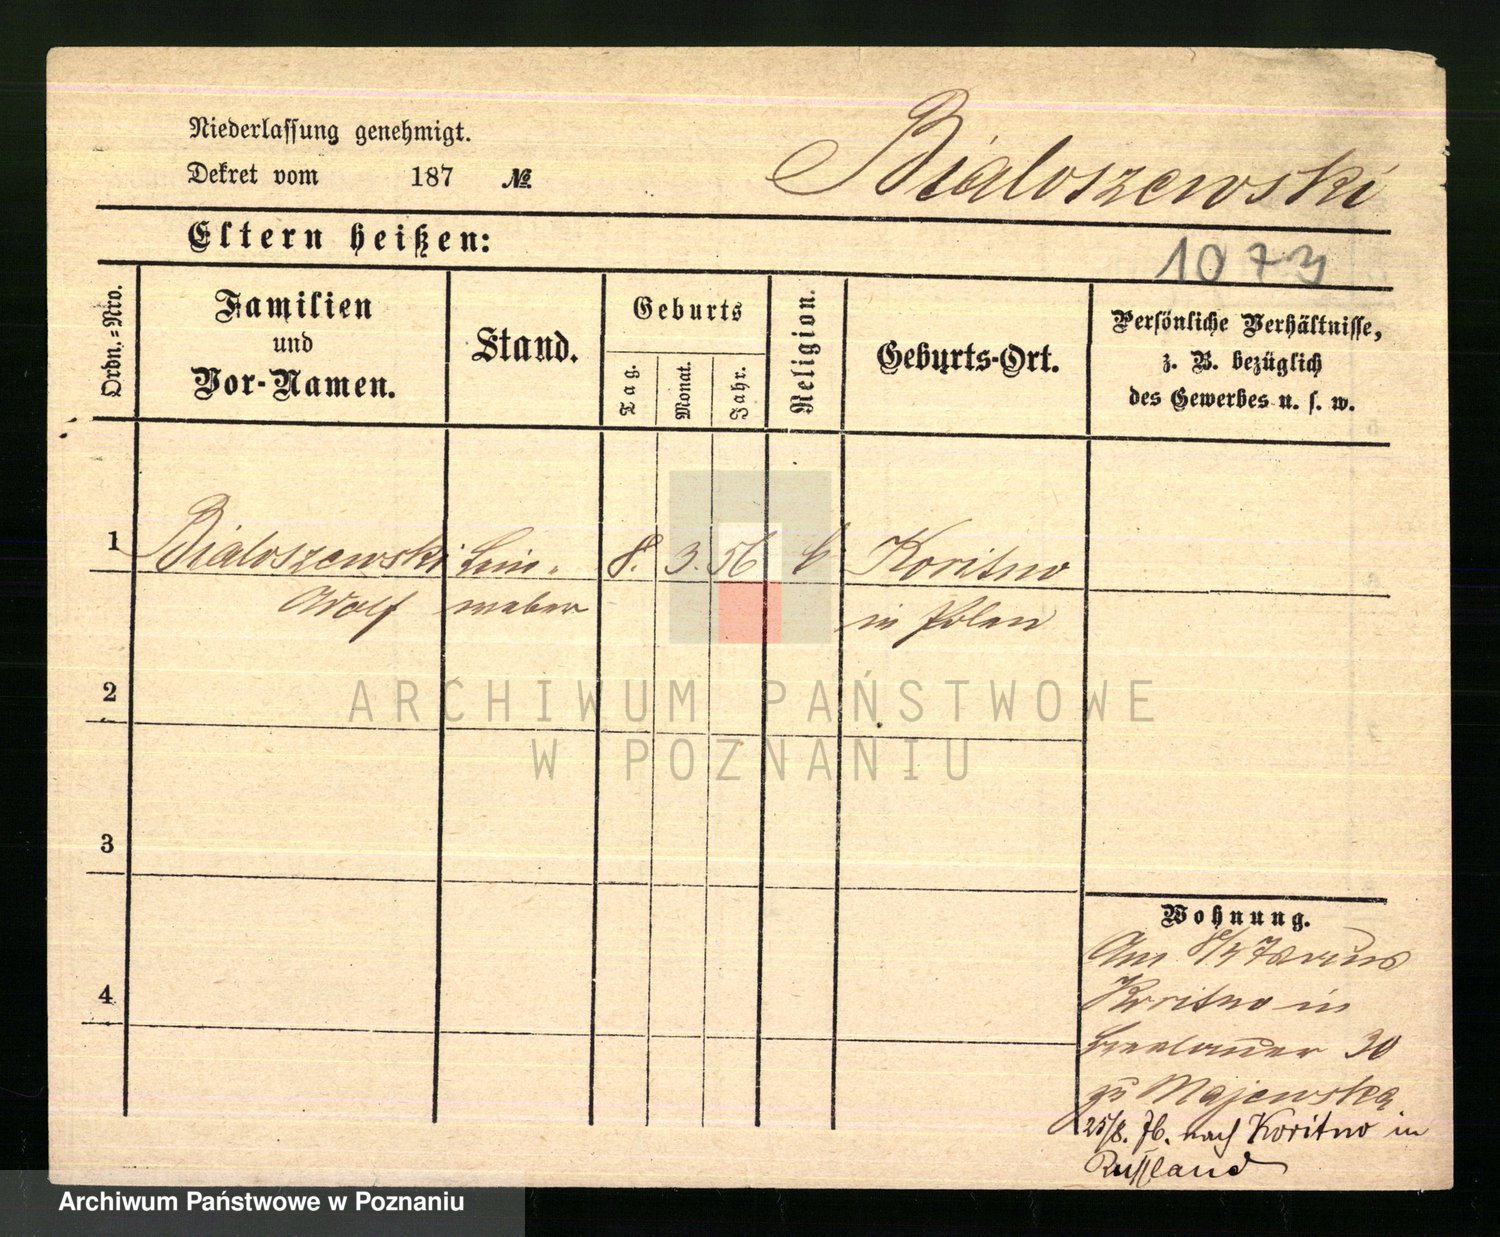 Niederlassung genehmigt.
Dekret vom 187 №
Bialoszewski
Eltern heißen:
1073
Ordn.-Nro.
Familien
und
Vor-Namen.
Stand.
Geburts
Tag.
Monat.
Jahr.
Religion.
Geburts-Ort.
Persönliche Verhältnisse,
z. B. bezüglich
des Gewerbes u. s. w.
1 Bialoszewski Lein- 8. 3. 56 Koritno
Wolf weber in Polen
2
3
4
Wohnung.
Am 8/5 76 aus
Koritno in
Breslauer 30
zu Majewska
25/8. 76. nach Koritno in
Russland
ARCHIWUM PAŃSTWOWE
W POZNANIU
Archiwum Państwowe w Poznaniu